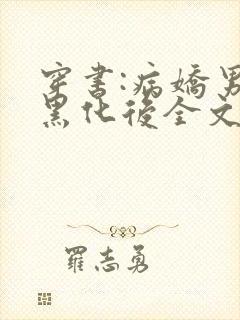 穿書:病嬌男
黑化後全文
羅志勇